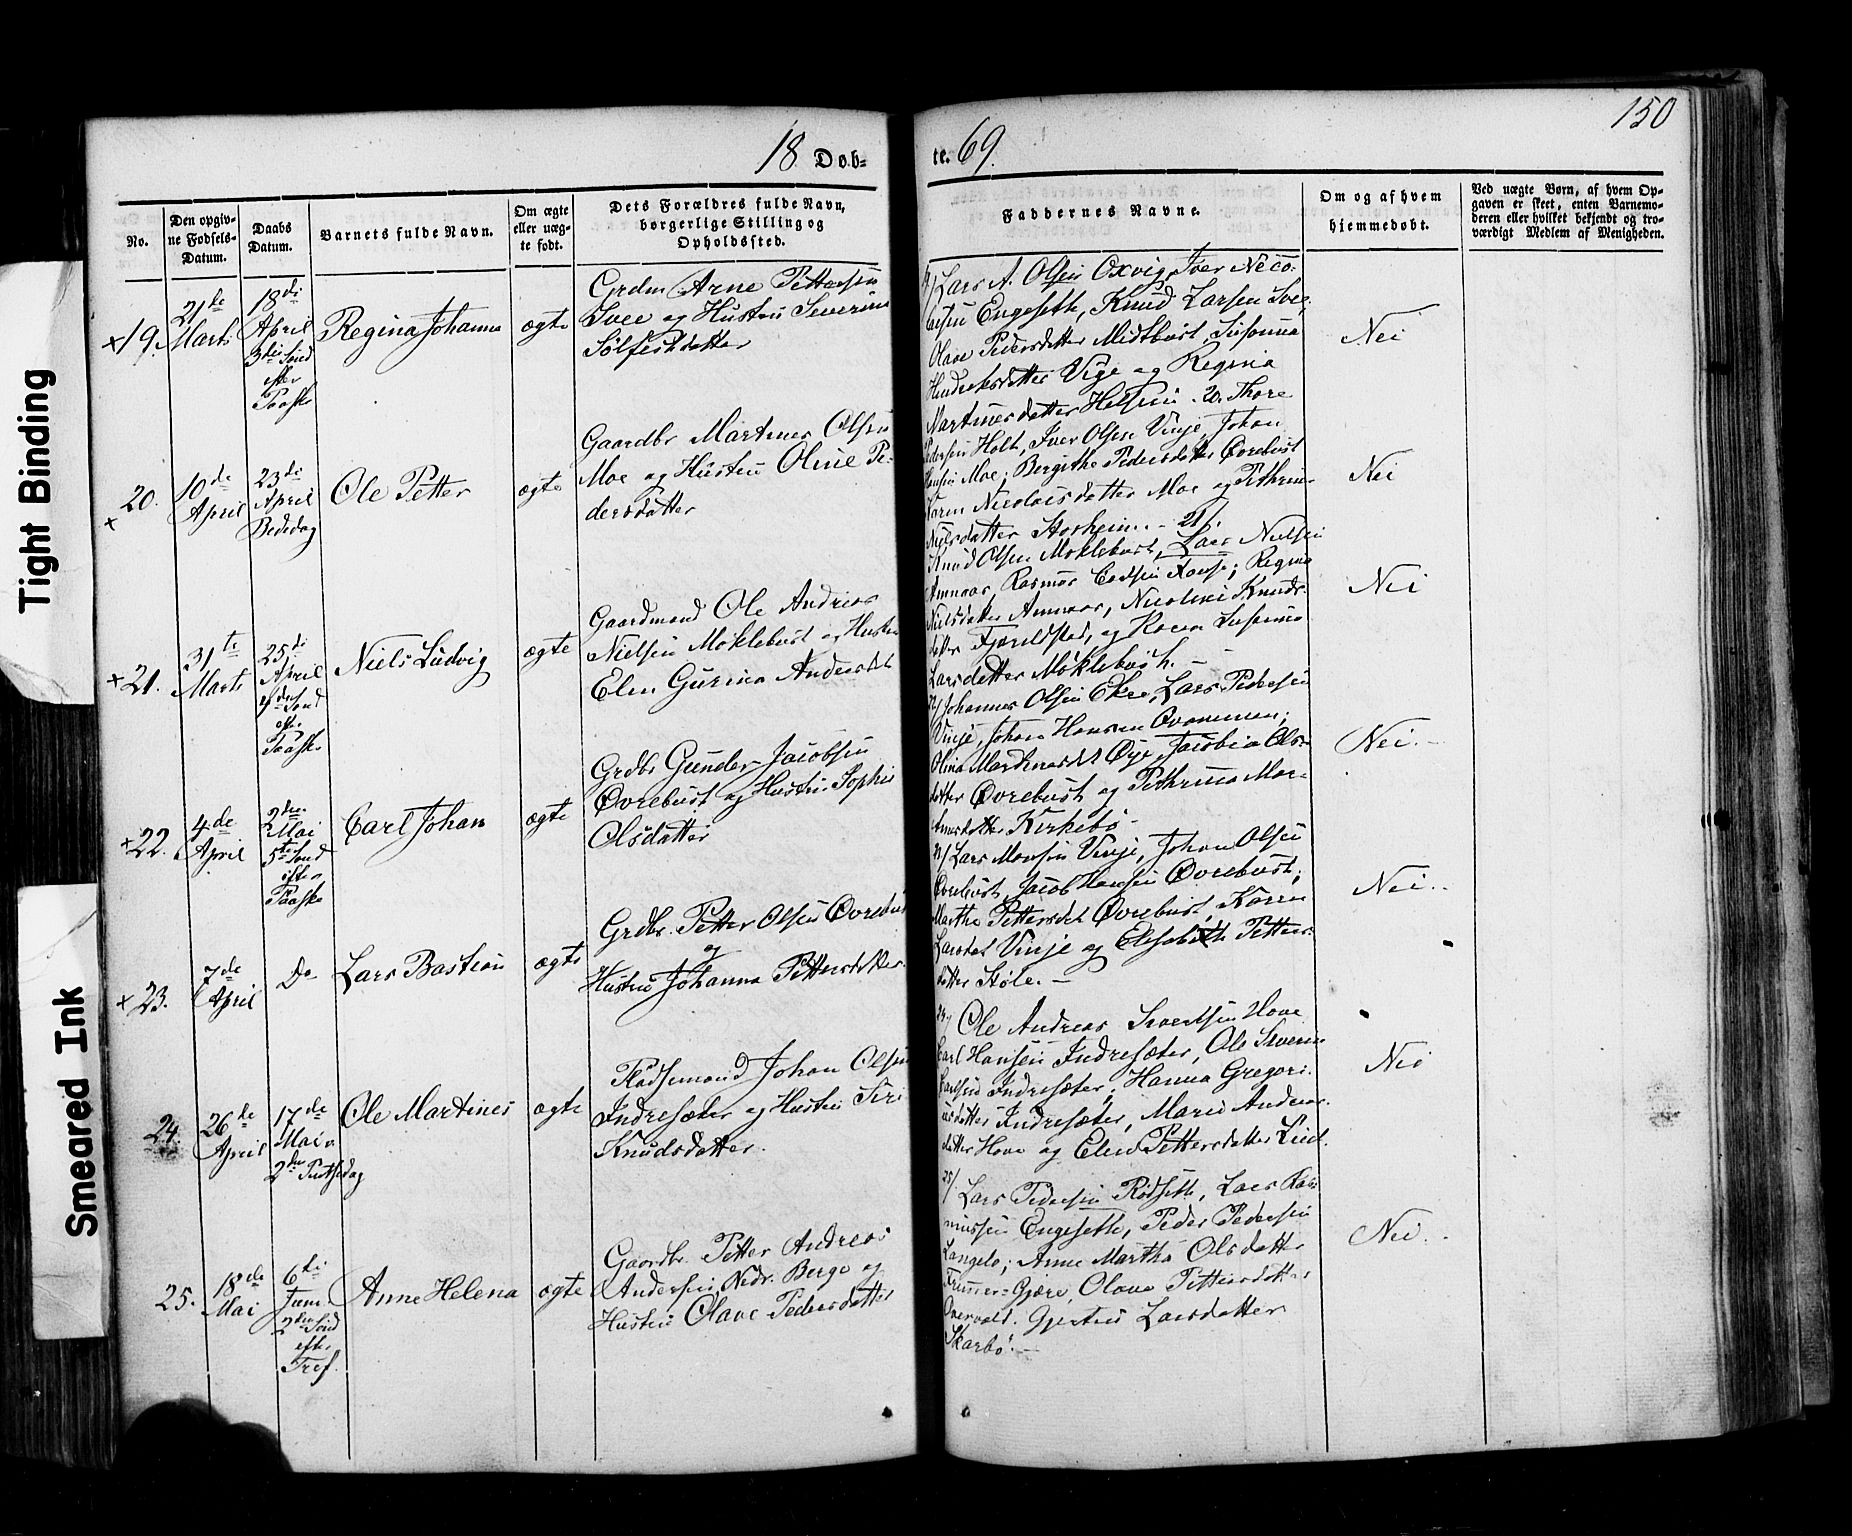 150
18 Døb-
te. 69.
No.
Den opgiv-
ne Fødsels-
Datum.
Daabs
Datum.
Barnets fulde Navn.
Om ægte
eller uæg-
te født.
Dets Forældres fulde Navn,
borgerlige Stilling og
Opholdssted.
Faddernes Navne.
Om og af hvem
hjemmedøbt.
Ved uægte Børn, af hvem Op-
gaven er skeet, enten Barnemo-
deren eller hvilket bekjendt og tro-
værdigt Medlem af Menigheden.
×19.
21de
Marts
18de
April
3die Sønd
efter
Paaske
Regina Johanna
ægte
Grdm Arne Pettersen
Svee og Hustru Severine
Sølfestdatter
Lars A. Olsen Oxvig, Iver Nico-
laisen Engeseth, Knud Larsen Svee,
Olave Pedersdatter Midtbust, Susanna
Hendriksdatter Vige og Regina
Martinusdatter Helsem. 20. Thore
Nei
×20.
10de
April
23de
April
Bededag
Ole Petter
ægte
Gaardbr Martinus Olsen
Moe og Hustru Oline Pe-
dersdatter
Pedersen Holt, Iver Olsen Vinje, Johan
Hansen Moe; Bergithe Pedersdatter Øvrebust
Karen Nicolaisdatter Moe og Pethrine
Nielsdatter Storheim. - 21/
Nei
×21.
31te
Marts
25de
April
4de Sønd
eft.
Paaske
Niels Ludvig
ægte
Gaardmand Ole Andreas
Nielsen Moklebust og Hustru
Elen Gurina Andersdt
Knud Olsen Moklebust, Lars Nielsen
Amnaas, Rasmus; Regina
Nielsdatter Amnaas, Nicoline Knuds-
datter Fjæreldstad, og Karen Susanna
Larsdatter Moklebust. -
Nei
×22.
4de
April
2den
Mai
5te Sønd
efter
Paaske
Carl Johan
ægte
Grdbr Gunder Jacobsen
Øvrebust og Hustru Sophie
Olsdatter
22/ Johannes Olsen Ekre, Lars Pedersen
Vinje, Johan Hansen Qvammen;
Olina Martinusdt Øye, Jacobia Ols-
datter Øvrebust og Pethrina Mar-
tinusdatter Kirkebø -
Nei. -
×23.
7de
April
Do
Lars Bastian
ægte
Grdbr. Petter Olsen Øvrebust
og
Hustru Johanna Pettersdatter.
23/ Lars Monsen Vinje, Johan Olsen
Øvrebust, Jacob Hansen Øvrebust;
Marthe Pettersdt Øvrebust, Karen
Larsdat Vinje og Elisabeth Petters-
datter Støle. -
Nei. -
24.
26de
April
17de
Mai
2den Pintsedag
Ole Martines
ægte
Pladsemand Johan Olsen
Indresæter og Hustru Siri
Knudsdatter.
24/ Ole Andreas Sivertsen Hove
Carl Hansen Indresæter, Ole Severin
Carlsen Indresæter; Hanna Gregori-
usdatter Indresæter, Marie Anders-
datter Hove og Elen Pettersdatter Lied.
Nei
25.
18de
Mai
6te
Juni
2den Sønd
eft.
Tref.
Anne Helena
ægte
Gaardbr. Petter Andreas
Andersen Nedr. Berge og
Hustru Olave Pedersdatter
25/ Lars Pedersen Rødseth, Lars Ras-
mussen Engeseth, Peder Pedersen
Langelo; Anne Martha Olsdatter
Gjære, Olave Pettersdatter
Overvold. Gjertru Larsdatter
Skarbø. -
Nei. -
Tight Binding
Smeared Ink